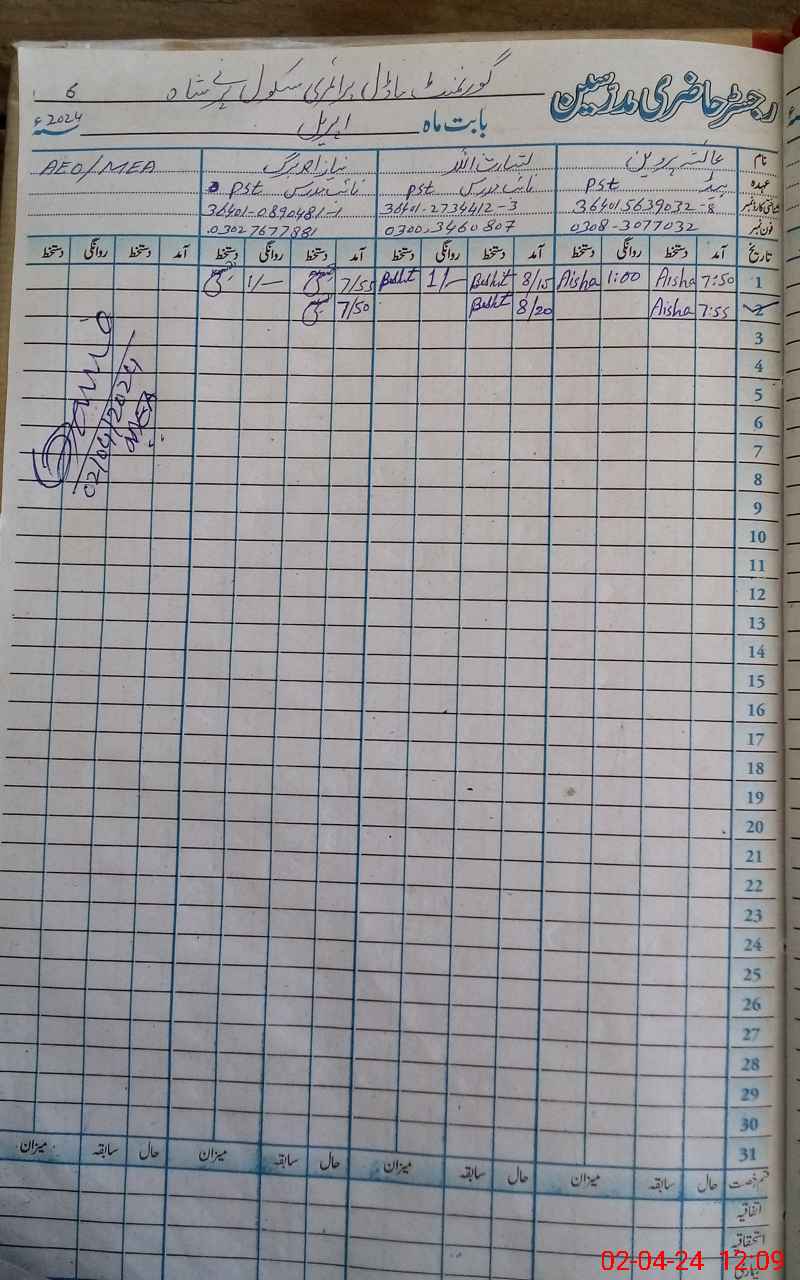 رجسٹر حاضری مدرسین
گورنمنٹ ماڈل پرائمری سکول
6
بابت ماہ اپریل 2024ء
نام عائشہ پروین بشارت اللہ نیاز احمد AEO/MEA
عہدہ ہیڈ PST نائب مدرس PST نائب مدرس PST
شناختی کارڈ نمبر 364015639032-8 36401-2734412-3 36401-0890481-1
فون نمبر 0308-3077032 0300.3460807 03027677881
تاریخ آمد دستخط روانگی دستخط آمد دستخط روانگی دستخط آمد دستخط روانگی دستخط آمد دستخط روانگی دستخط
1 7:50 Aisha 1:00 Aisha 8/15 1/- 7/55 1/-
2 7:55 Aisha 8/20 7/50
3
4
5
6
7
8
9
10
11
12
13
14
15
16
17
18
19
20
21
22
23
24
25
26
27
28
29
30
31
02/04/2024
MEA
قسم رخصت حال سابقہ میزان حال سابقہ میزان حال سابقہ میزان حال سابقہ میزان
اتفاقیہ
استحقاقیہ
02-04-24 12:09